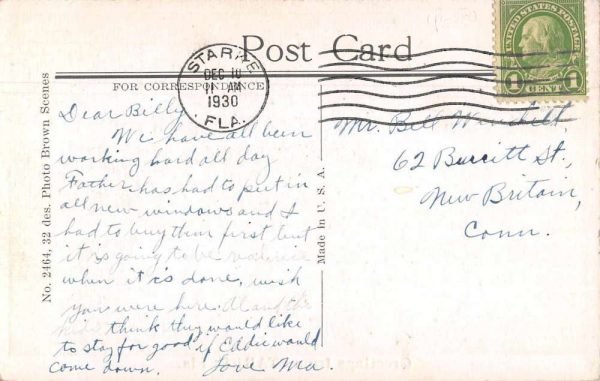 Post Card
UNITED STATES POSTAGE
1 CENT 1
STARKE
DEC 10
11 AM
1930
FLA.
FOR CORRESPONDENCE
Dear Billy
We have all been
working hard all day
Father has had to put in
all new windows and I
had to buy them first but
it is going to be real nice
when it is done, wish
you were here. Al and the
kids think they would like
to stay for good if Eddie would
come down. Love Ma.
Mr. Bill
62 Burritt St.,
New Britain,
Conn.
No. 2464, 32 des. Photo Brown Scenes
Made in U. S. A.